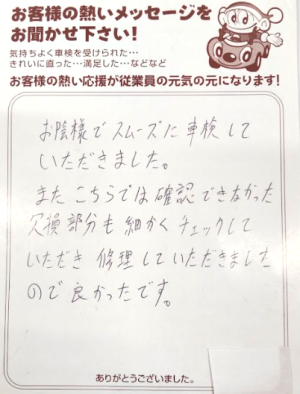 お客様の熱いメッセージを
お聞かせ下さい!
気持ちよく車検を受けられた…
きれいに直った…満足した…などなど
お客様の熱い応援が従業員の元気の元になります!
お陰様でスムーズに車検して
いただきました。
またこちらでは確認できなかった
欠損部分も細かくチェックして
いただき修理していただきました
ので良かったです。
ありがとうございました。